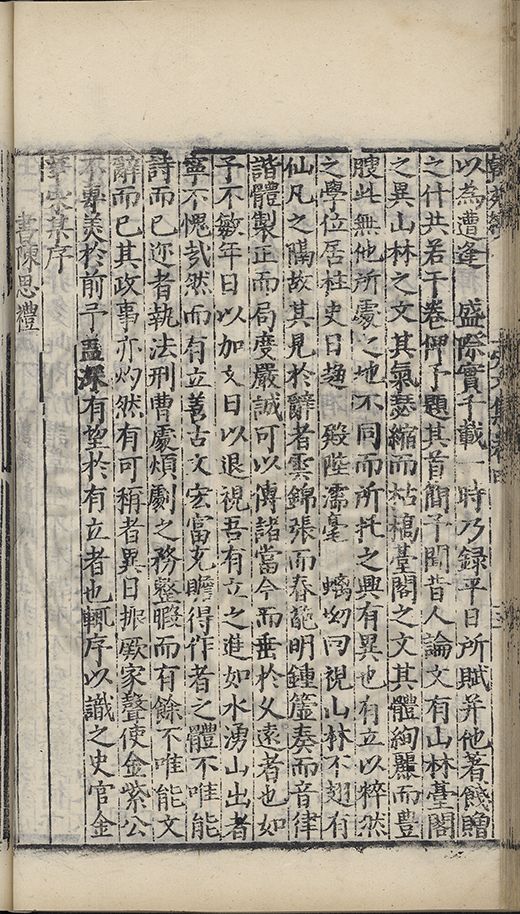 集卷四
以為遭逢 盛際實千載一時乃録平日所賦并他著餞贈
之什共若干卷俾予題其首簡予聞昔人論文有山林臺閣
之異山林之文其氣瑟縮而枯槁臺閣之文其體絢麗而豐
腴此無他所處之地不同而所托之興有異也有立以粹然
之學位居柱史日趨 殿陛濡毫 螭坳回視山林不翅有
仙凡之隔故其見於辭者雲錦張而春葩明鍾簴奏而音律
諧體製正而局度嚴誠可以傳諸當今而垂於久遠者也如
予不敏年日以加文日以退視吾有立之進如水湧山出者
寧不愧哉然而有立善古文宏富充贍得作者之體不唯能
詩而已迩者執法刑曹處煩劇之務整暇而有餘不唯能文
辭而已其政事亦灼然有可稱者異日振厥家聲使金紫公
不專美於前予益深有望於有立者也輒序以識之史官金
華宋某序
書陳思禮